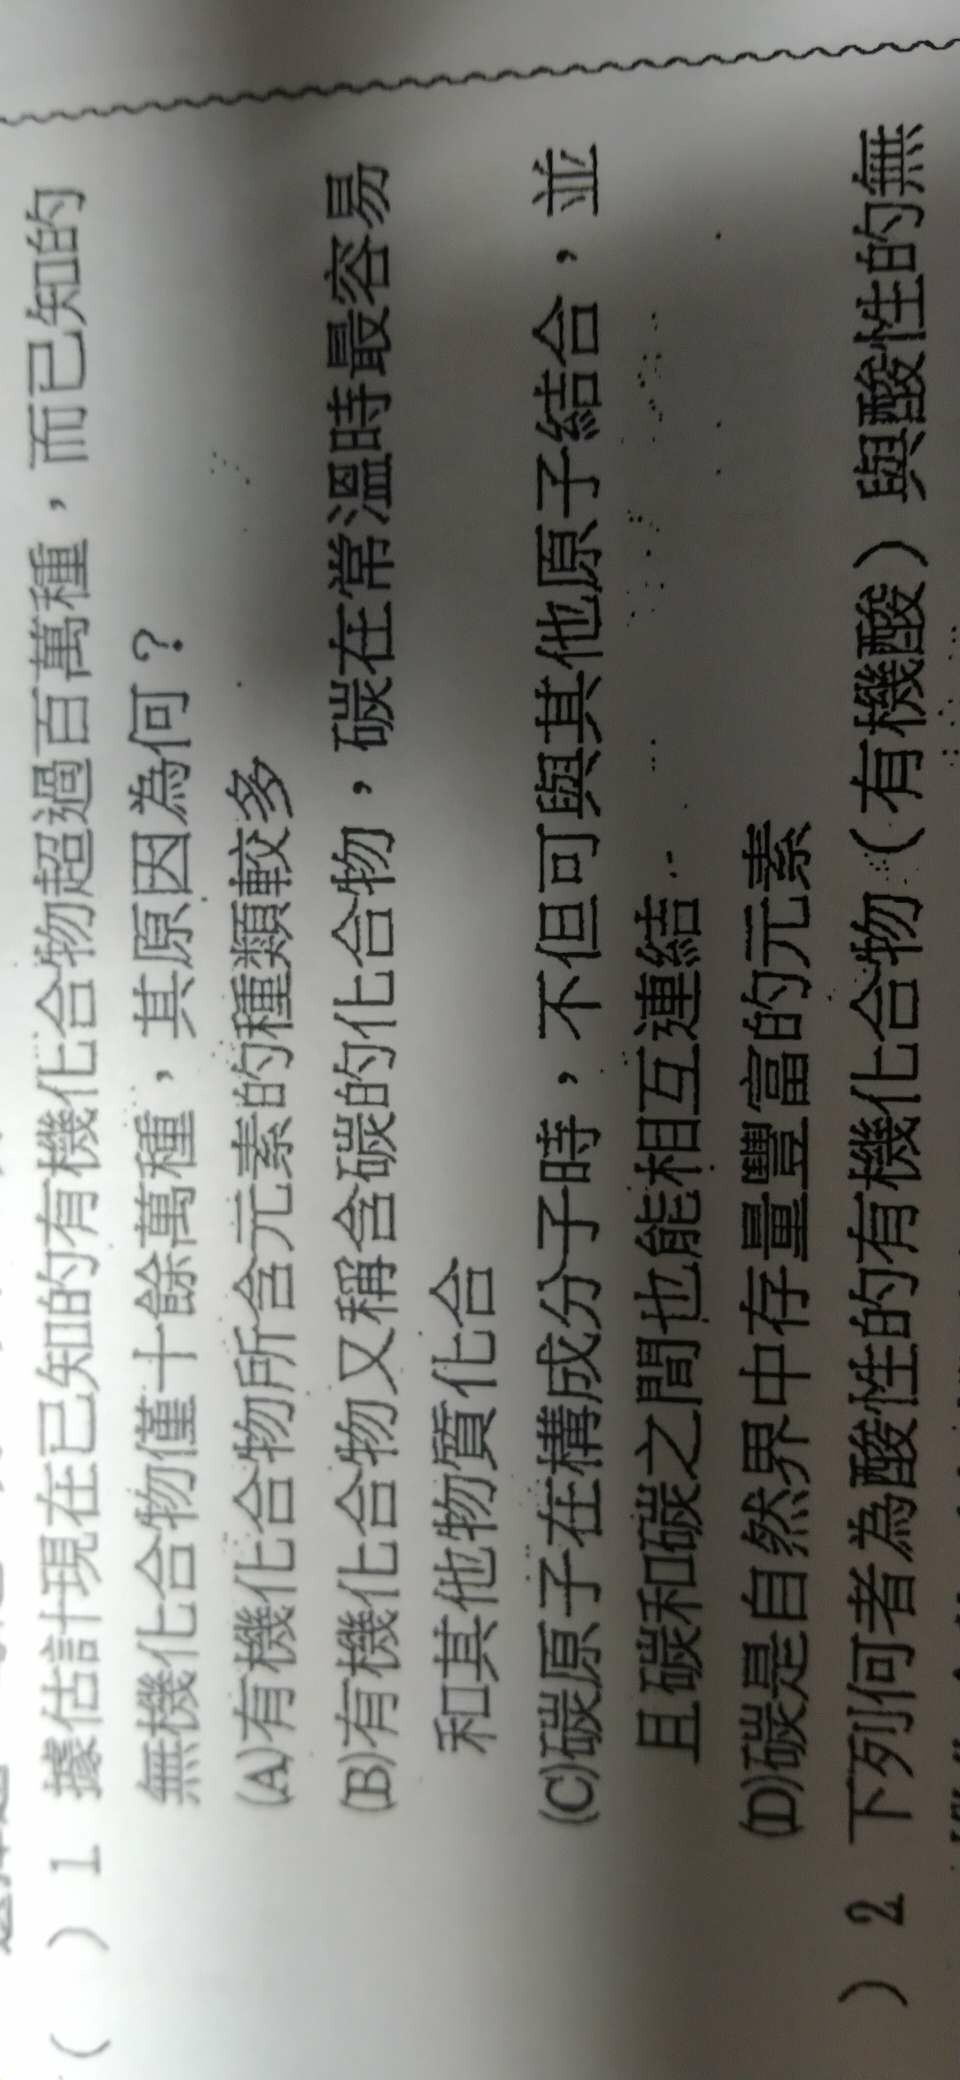 ( ) 1 據估計現在已知的有機化合物超過百萬種，而已知的
無機化合物僅十餘萬種，其原因為何？
(A)有機化合物所含元素的種類較多
(B)有機化合物又稱含碳的化合物，碳在常溫時最容易
和其他物質化合
(C)碳原子在構成分子時，不但可與其他原子結合，並
且碳和碳之間也能相互連結
(D)碳是自然界中存量豐富的元素
) 2 下列何者為酸性的有機化合物（有機酸）與酸性的無